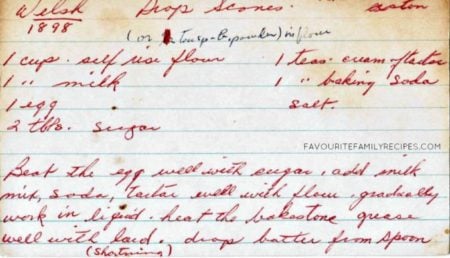 Welsh Drop Scones. aston
1898
(or tensp B. powder) in flour
1 cup self rise flour 1 teas. cream of tartar
1 " milk 1 " baking soda
1 egg salt.
2 tbls. sugar
FAVOURITEFAMILYRECIPES.COM
Beat the egg well with sugar. add milk
mix, soda, tartar well with flour. gradually
work in liquid. heat the bakestone grease
well with lard. drop batter from spoon
(shortning)